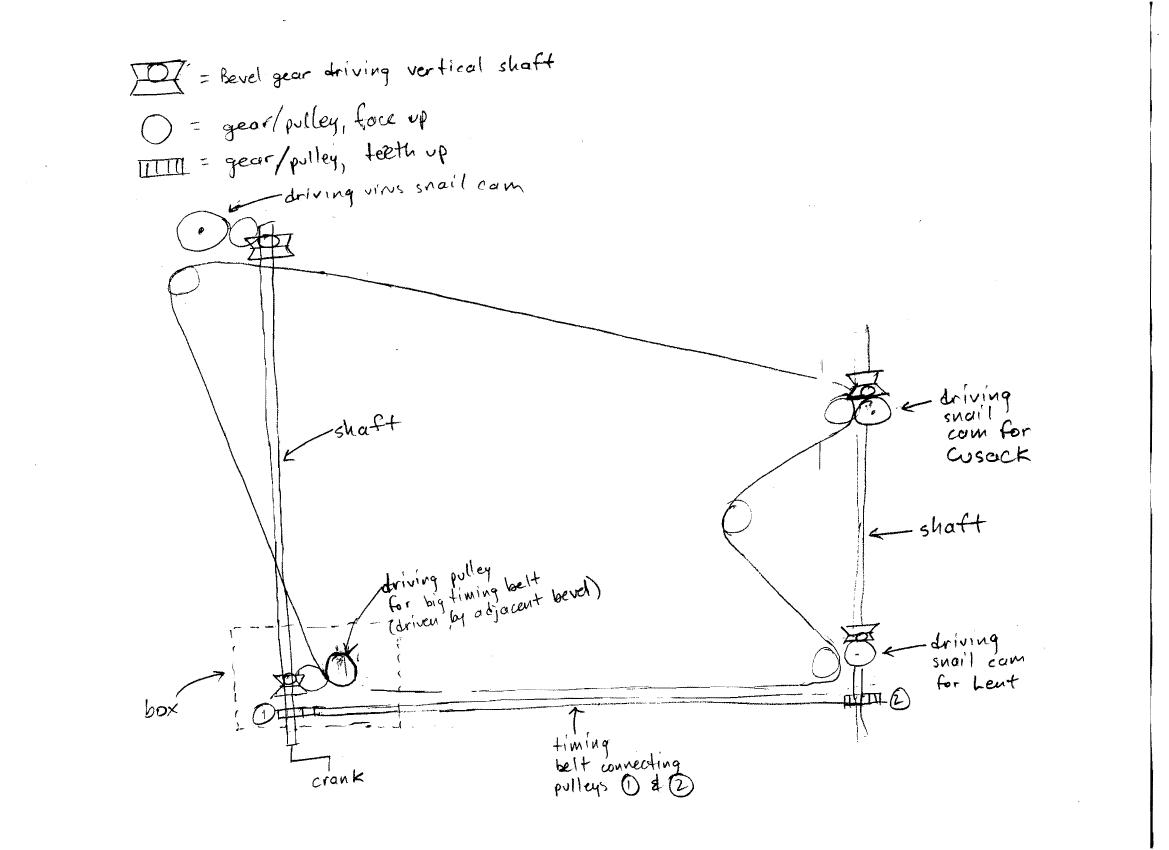 = Bevel gear driving vertical shaft
= gear/pulley, face up
= gear/pulley, teeth up
driving virus snail cam
driving
snail
cam for
Cusack
shaft
shaft
driving pulley
for big timing belt
(driven by adjacent bevel)
driving
snail cam
for Lent
box
1
2
timing
belt connecting
pulleys 1 & 2
crank